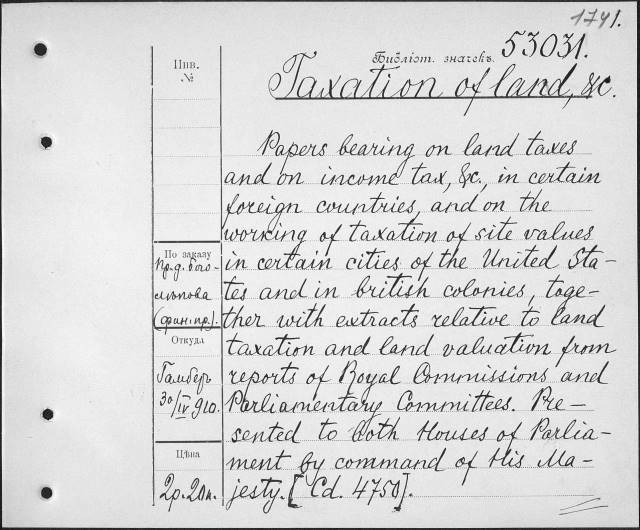 1741.
Библіот. значекъ 53031.
Taxation of land, &c.
Инв.
№
Papers bearing on land taxes
and on income tax, &c., in certain
foreign countries, and on the
working of taxation of site values
in certain cities of the United Sta-
tes and in british colonies, toge-
ther with extracts relative to land
taxation and land valuation from
reports of Royal Commissions and
Parliamentary Committees. Pre-
sented to both Houses of Parlia-
ment by command of His Ma-
jesty. [Cd. 4750].
По заказу
пр.д. Бого-
лѣпова
(фин. пр.).
Откуда
Гамберъ
30/IV 910.
Цѣна
2р. 20к.